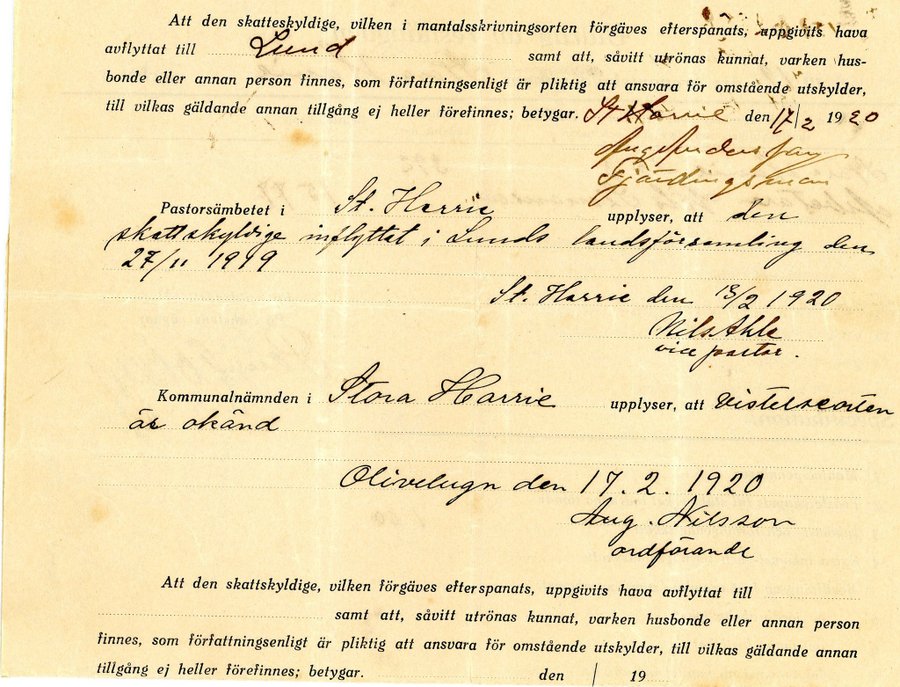 Att den skatteskyldige, vilken i mantalsskrivningsorten förgäves efterspanats, uppgivits hava
avflyttat till Lund samt att, såvitt utrönas kunnat, varken hus-
bonde eller annan person finnes, som författningsenligt är pliktig att ansvara för omstående utskylder,
till vilkas gäldande annan tillgång ej heller förefinnes; betygar. St Harrie den 17/2 1920
Aug Andersson
Fjärdingsman
Pastorsämbetet i St. Harrie upplyser, att den
skattskyldige inflyttat i Lunds landsförsamling den
27/11 1919
St. Harrie den 13/2 1920
Nils Ahle
vice pastor.
Kommunalnämnden i Stora Harrie upplyser, att vistelseorten
är okänd
den 17.2.1920
Aug. Nilsson
ordförande
Att den skattskyldige, vilken förgäves efterspanats, uppgivits hava avflyttat till
samt att, såvitt utrönas kunnat, varken husbonde eller annan person
finnes, som författningsenligt är pliktig att ansvara för omstående utskylder, till vilkas gäldande annan
tillgång ej heller förefinnes; betygar. den / 19